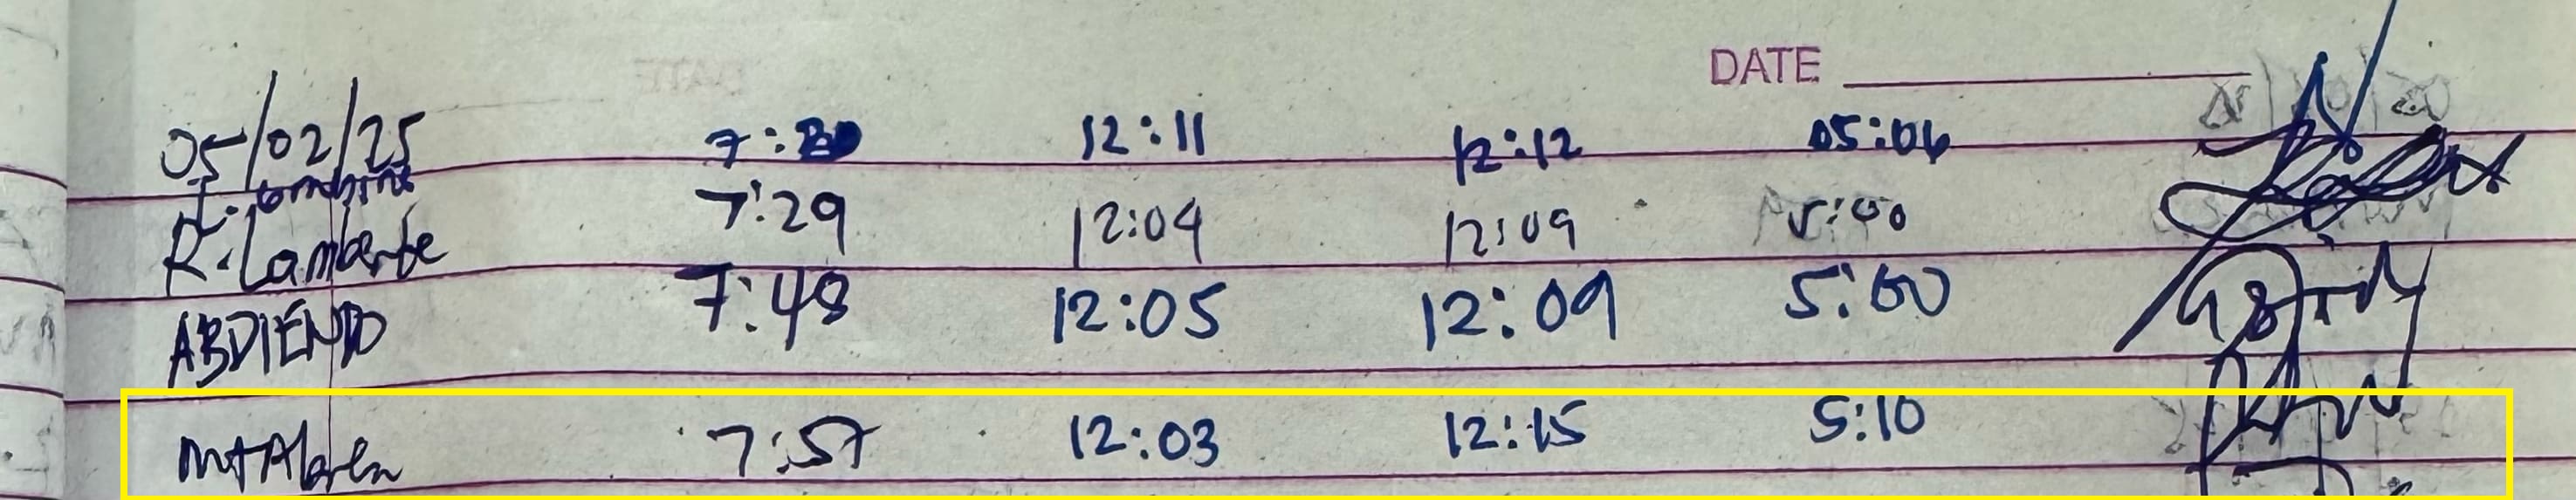 DATE
05/02/25 7:30 12:11 12:12 05:06
R. Lamberte 7:29 12:04 12:09 5:00
ABDIENDO 7:48 12:05 12:09 5:00
7:57 12:03 12:15 5:10